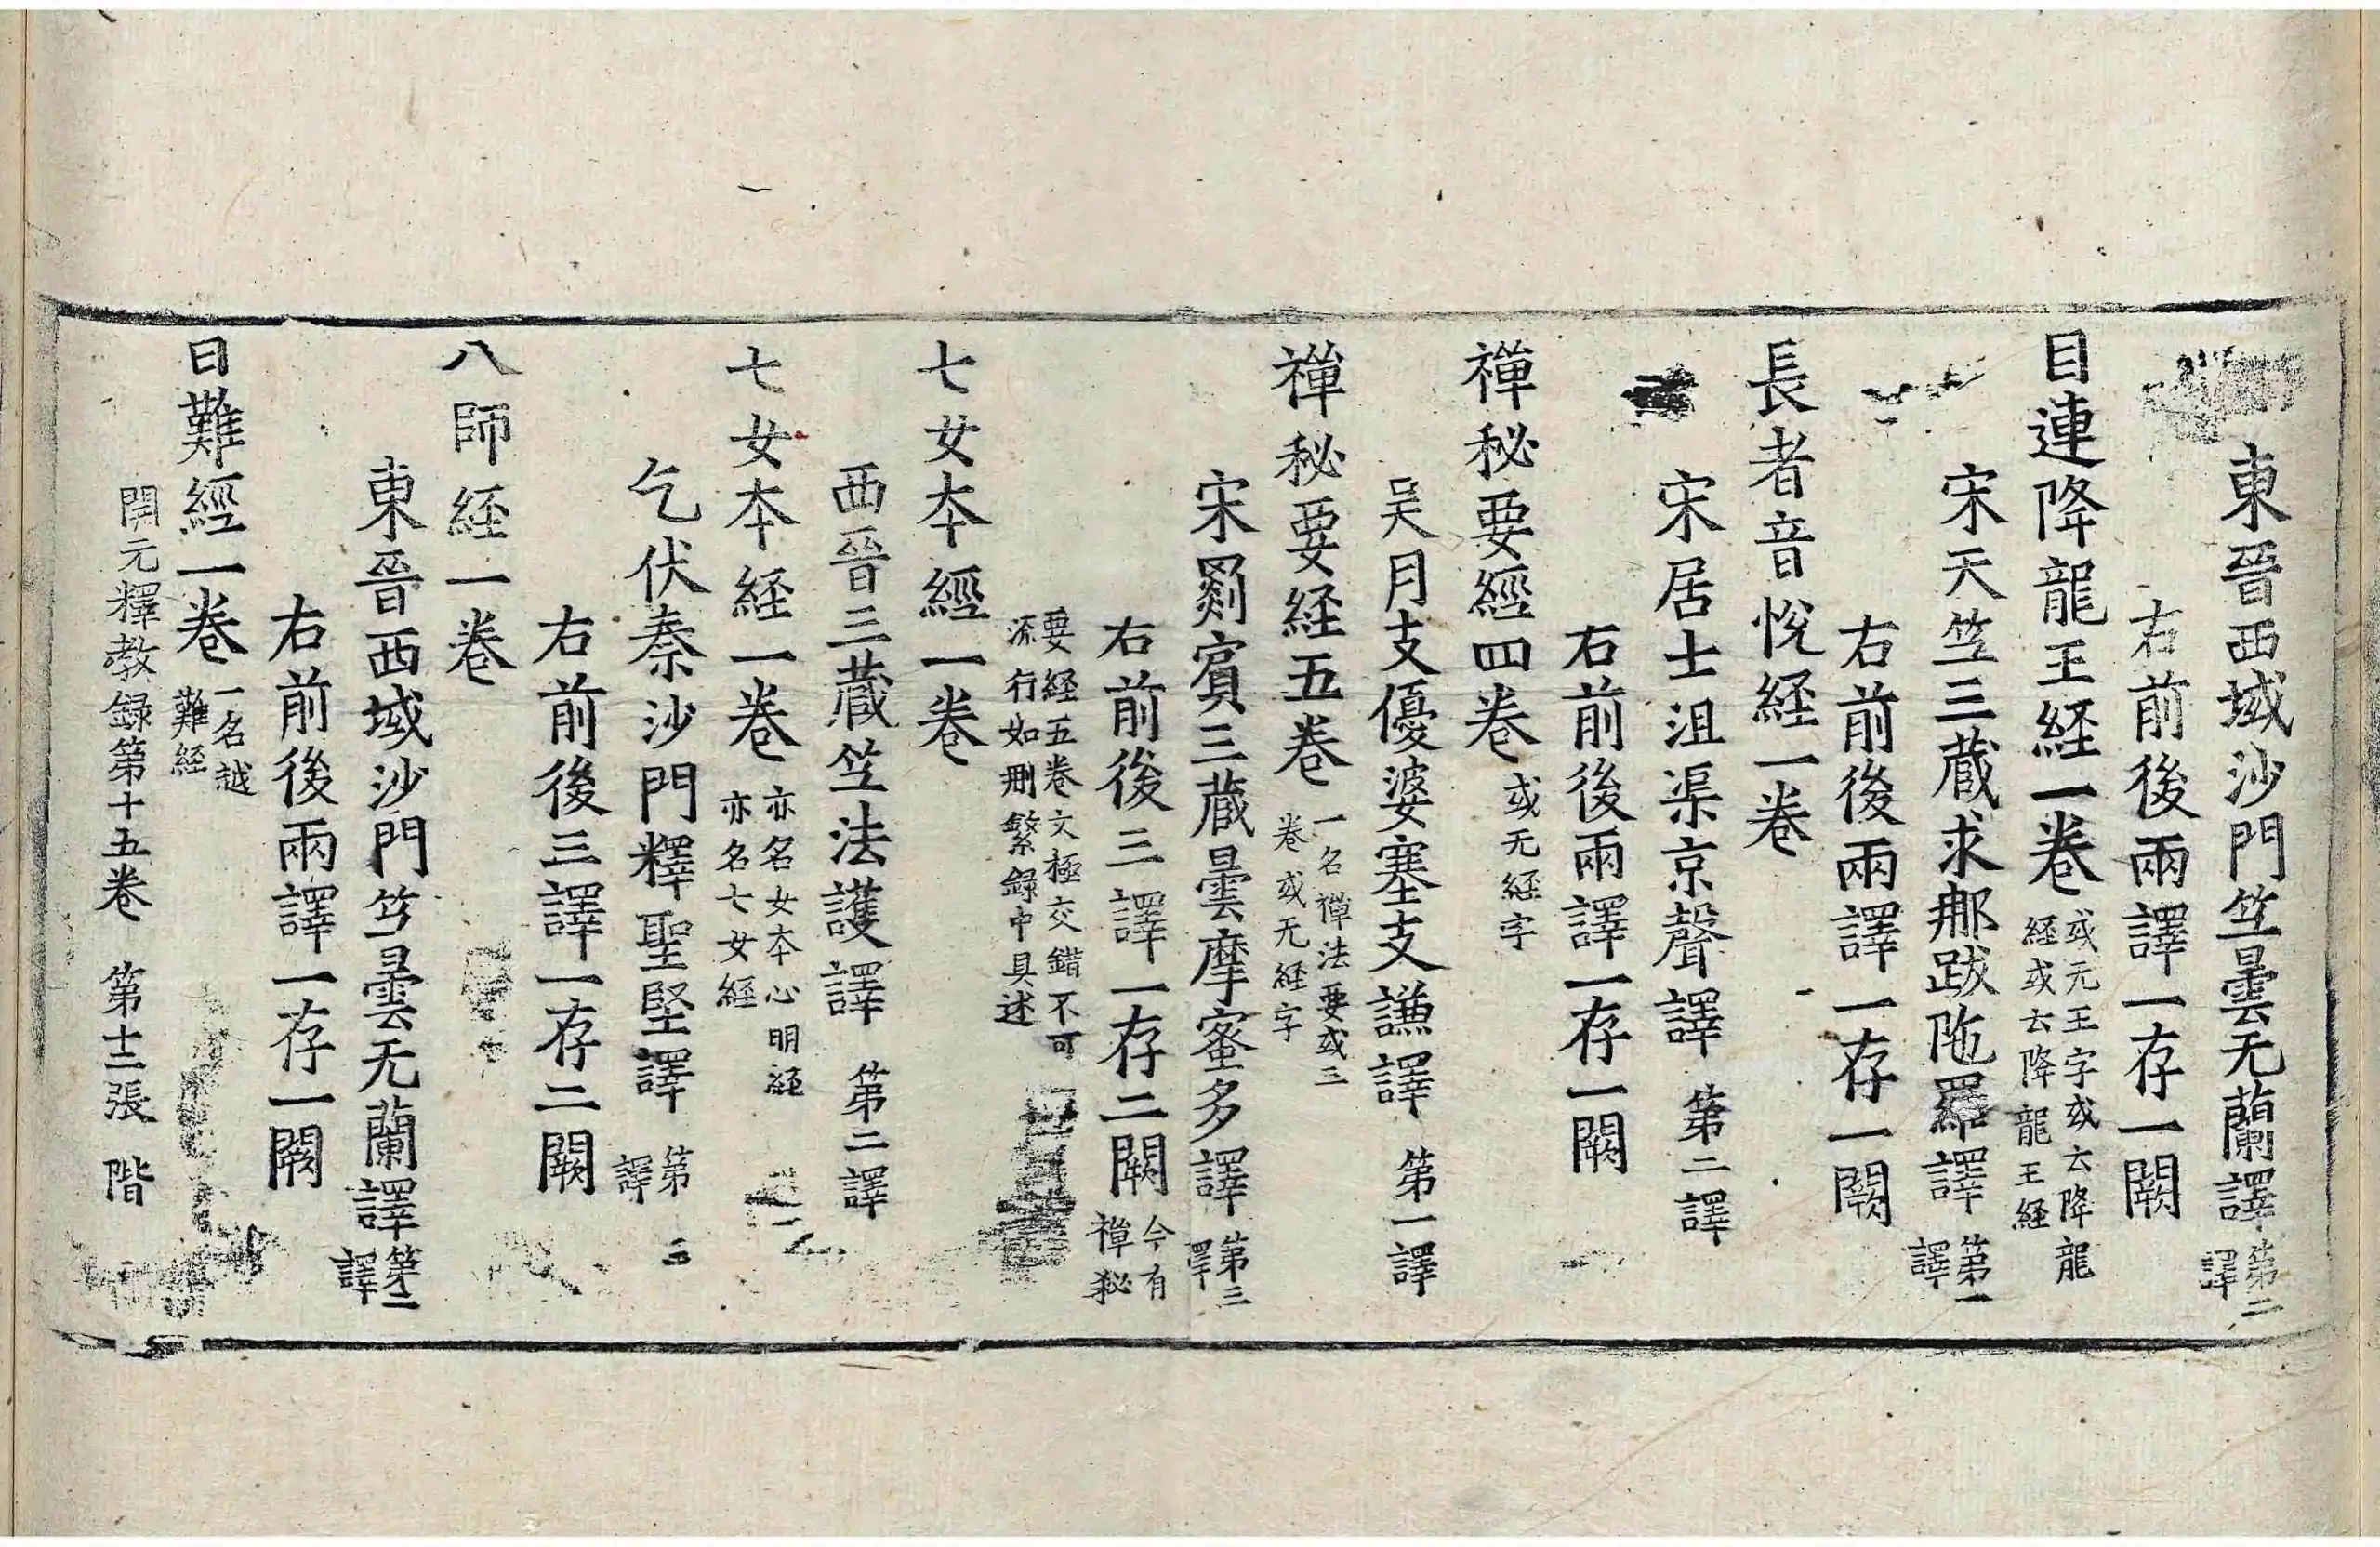 東晉西域沙門竺曇无蘭譯第二譯
右前後兩譯一存一闕
目連降龍王経一卷或元王字或云降龍経或云降龍王経
宋天竺三蔵求那跋陁羅譯第一譯
右前後兩譯一存一闕
長者音恱経一卷
宋居士沮渠京聲譯第二譯
右前後兩譯一存一闕
禪秘要經四卷或无経字
吴月支優婆塞支謙譯第一譯
禪秘要経五卷一名禪法要或三卷或无経字
宋罽賓三蔵曇摩蜜多譯第三譯
右前後三譯一存二闕今有禪秘
要経五卷文極交錯不可流行如刪繁録中具述
七女本經一卷
西晉三蔵竺法護譯第二譯
七女本経一卷亦名女本心明経亦名七女經
乞伏秦沙門釋聖堅譯第三譯
右前後三譯一存二闕
八師経一卷
東晉西域沙門竺曇无蘭譯第二譯
右前後兩譯一存一闕
曰難經一卷一名越難経
開元釋教録第十五卷　第十二張　階